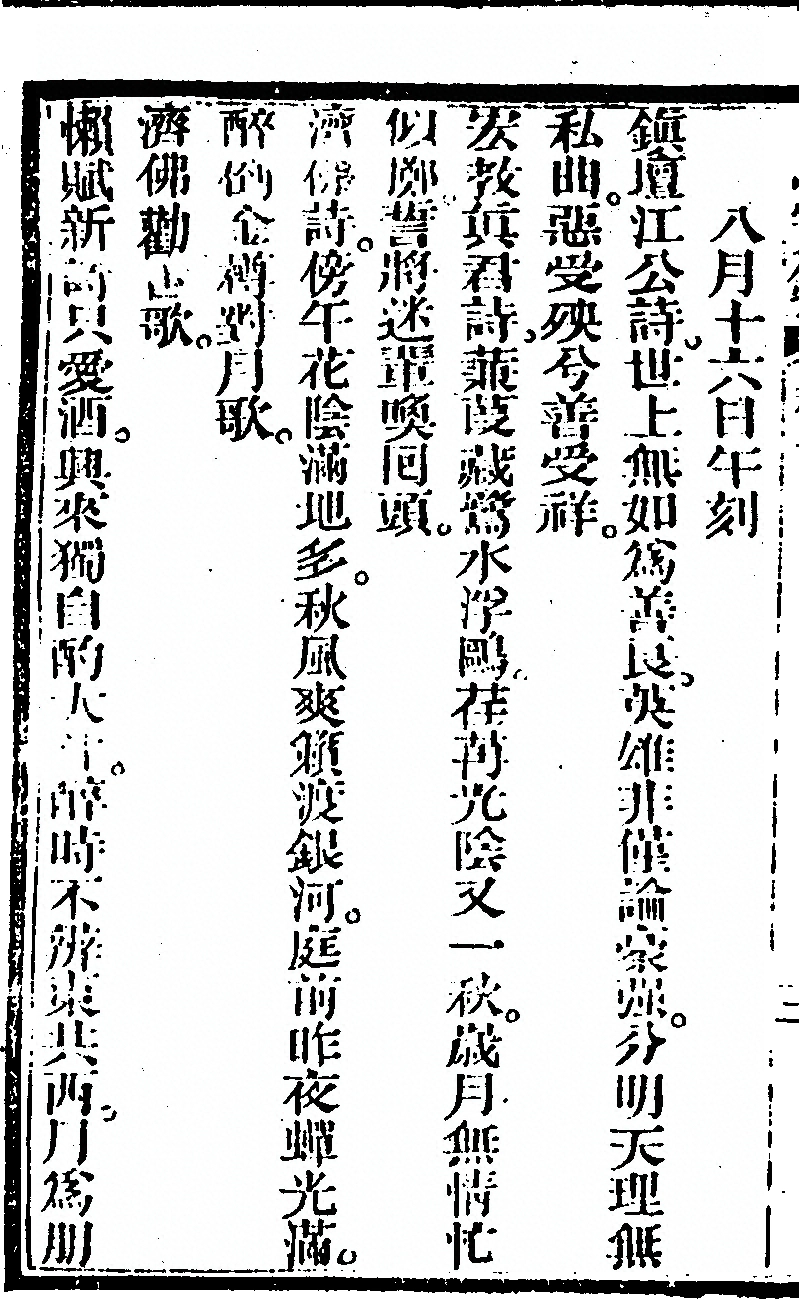 八月十六日午刻
鎮壇江公詩。世上無如為善良。英雄非僅論豪強。分明天理無
私曲。惡受殃兮善受祥。
宏教真君詩。葉葭藏鷺水浮鷗。荏苒光陰又一秋。歲月無情忙
似擲。誓將迷輩喚囘頭。
濟佛詩。傍午花陰滿地多。秋風爽籟渡銀河。庭前昨夜蟬光滿。
醉倒金樽對月歌。
濟佛勸世歌。
懶賦新詩只愛酒。興來獨自酌大斗。醉時不辨東共西。月為朋